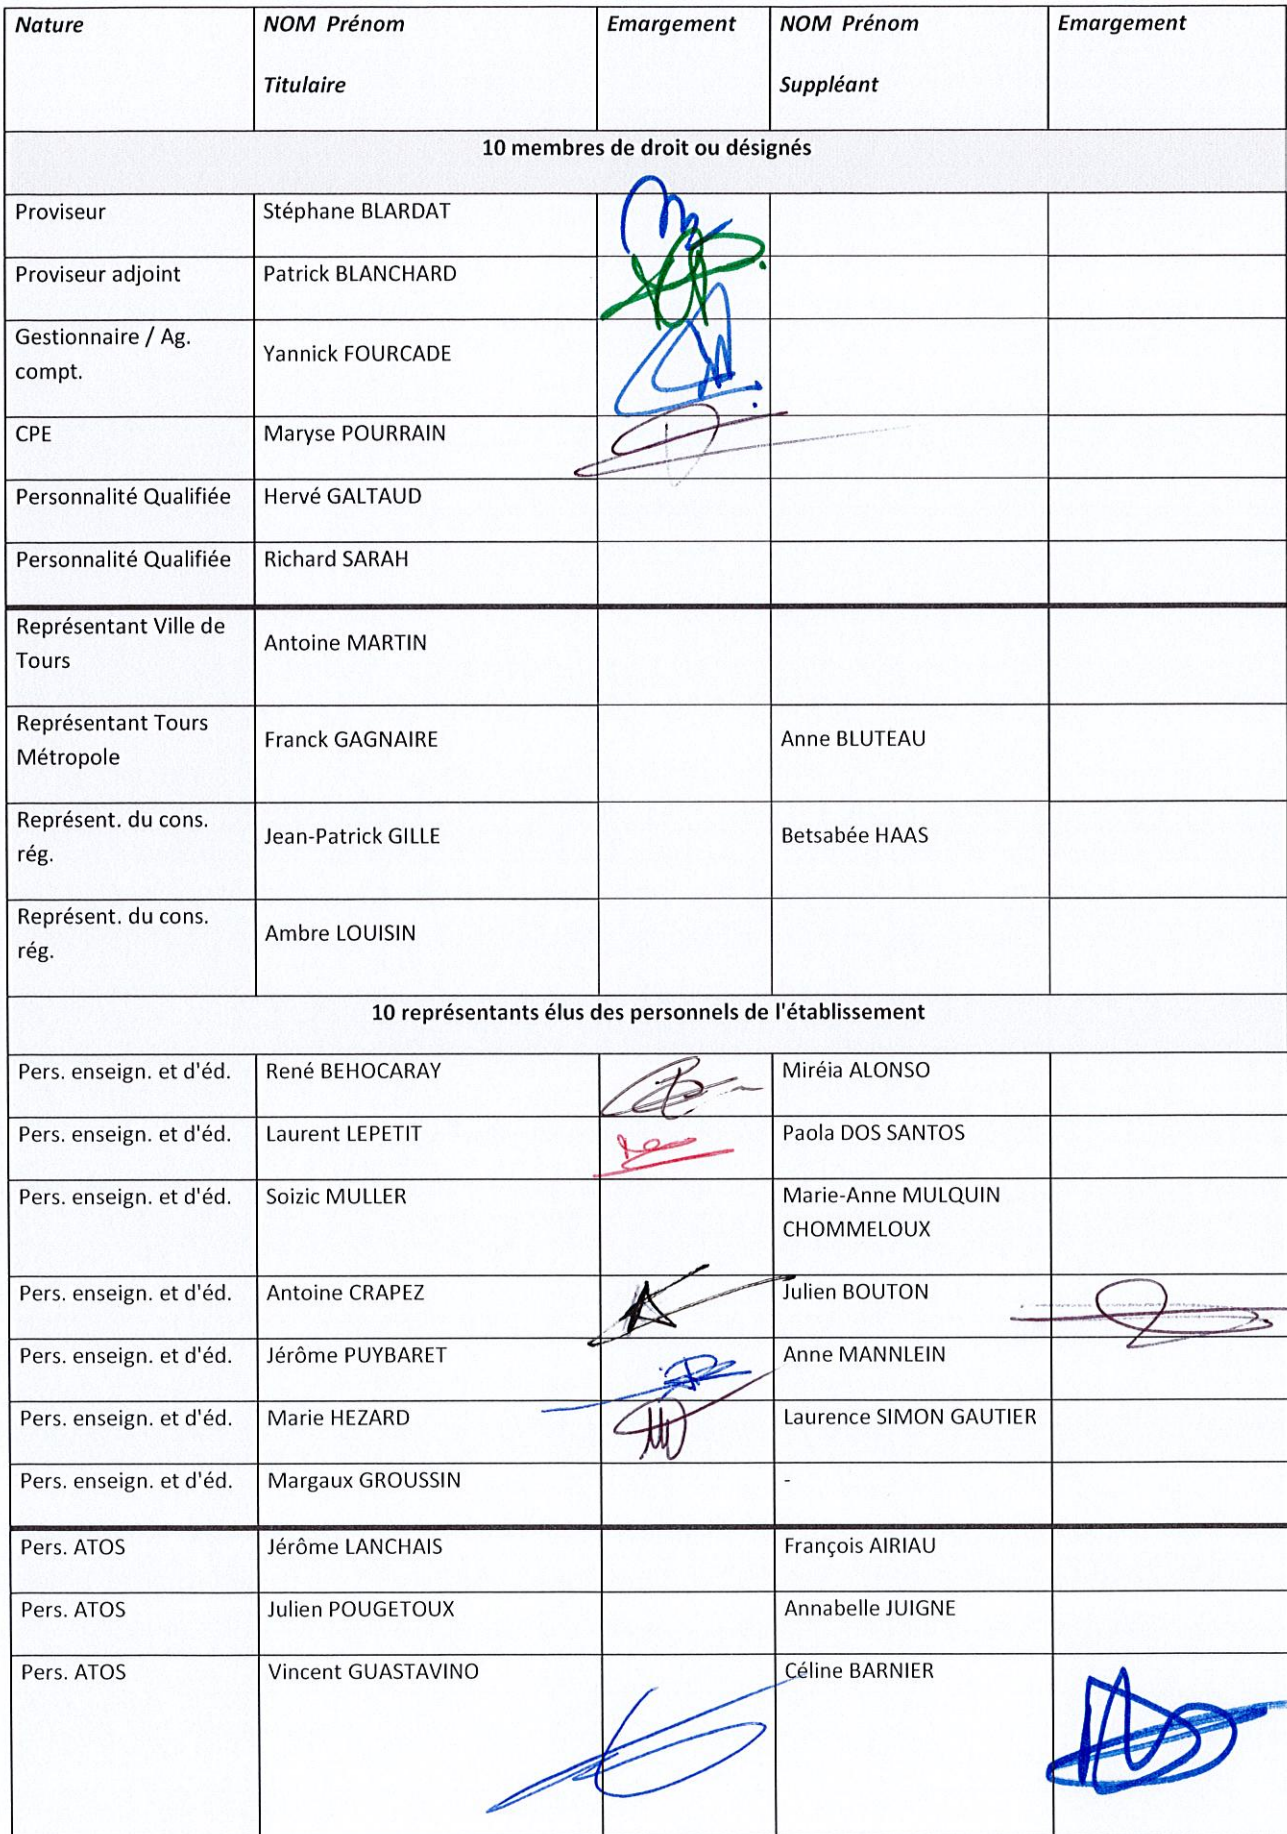 Nature NOM Prénom Emargement NOM Prénom Emargement
Titulaire Suppléant
10 membres de droit ou désignés
Proviseur Stéphane BLARDAT
Proviseur adjoint Patrick BLANCHARD
Gestionnaire / Ag.
compt. Yannick FOURCADE
CPE Maryse POURRAIN
Personnalité Qualifiée Hervé GALTAUD
Personnalité Qualifiée Richard SARAH
Représentant Ville de
Tours Antoine MARTIN
Représentant Tours
Métropole Franck GAGNAIRE Anne BLUTEAU
Représent. du cons.
rég. Jean-Patrick GILLE Betsabée HAAS
Représent. du cons.
rég. Ambre LOUISIN
10 représentants élus des personnels de l'établissement
Pers. enseign. et d'éd. René BEHOCARAY Miréia ALONSO
Pers. enseign. et d'éd. Laurent LEPETIT Paola DOS SANTOS
Pers. enseign. et d'éd. Soizic MULLER Marie-Anne MULQUIN
CHOMMELOUX
Pers. enseign. et d'éd. Antoine CRAPEZ Julien BOUTON
Pers. enseign. et d'éd. Jérôme PUYBARET Anne MANNLEIN
Pers. enseign. et d'éd. Marie HEZARD Laurence SIMON GAUTIER
Pers. enseign. et d'éd. Margaux GROUSSIN -
Pers. ATOS Jérôme LANCHAIS François AIRIAU
Pers. ATOS Julien POUGETOUX Annabelle JUIGNE
Pers. ATOS Vincent GUASTAVINO Céline BARNIER